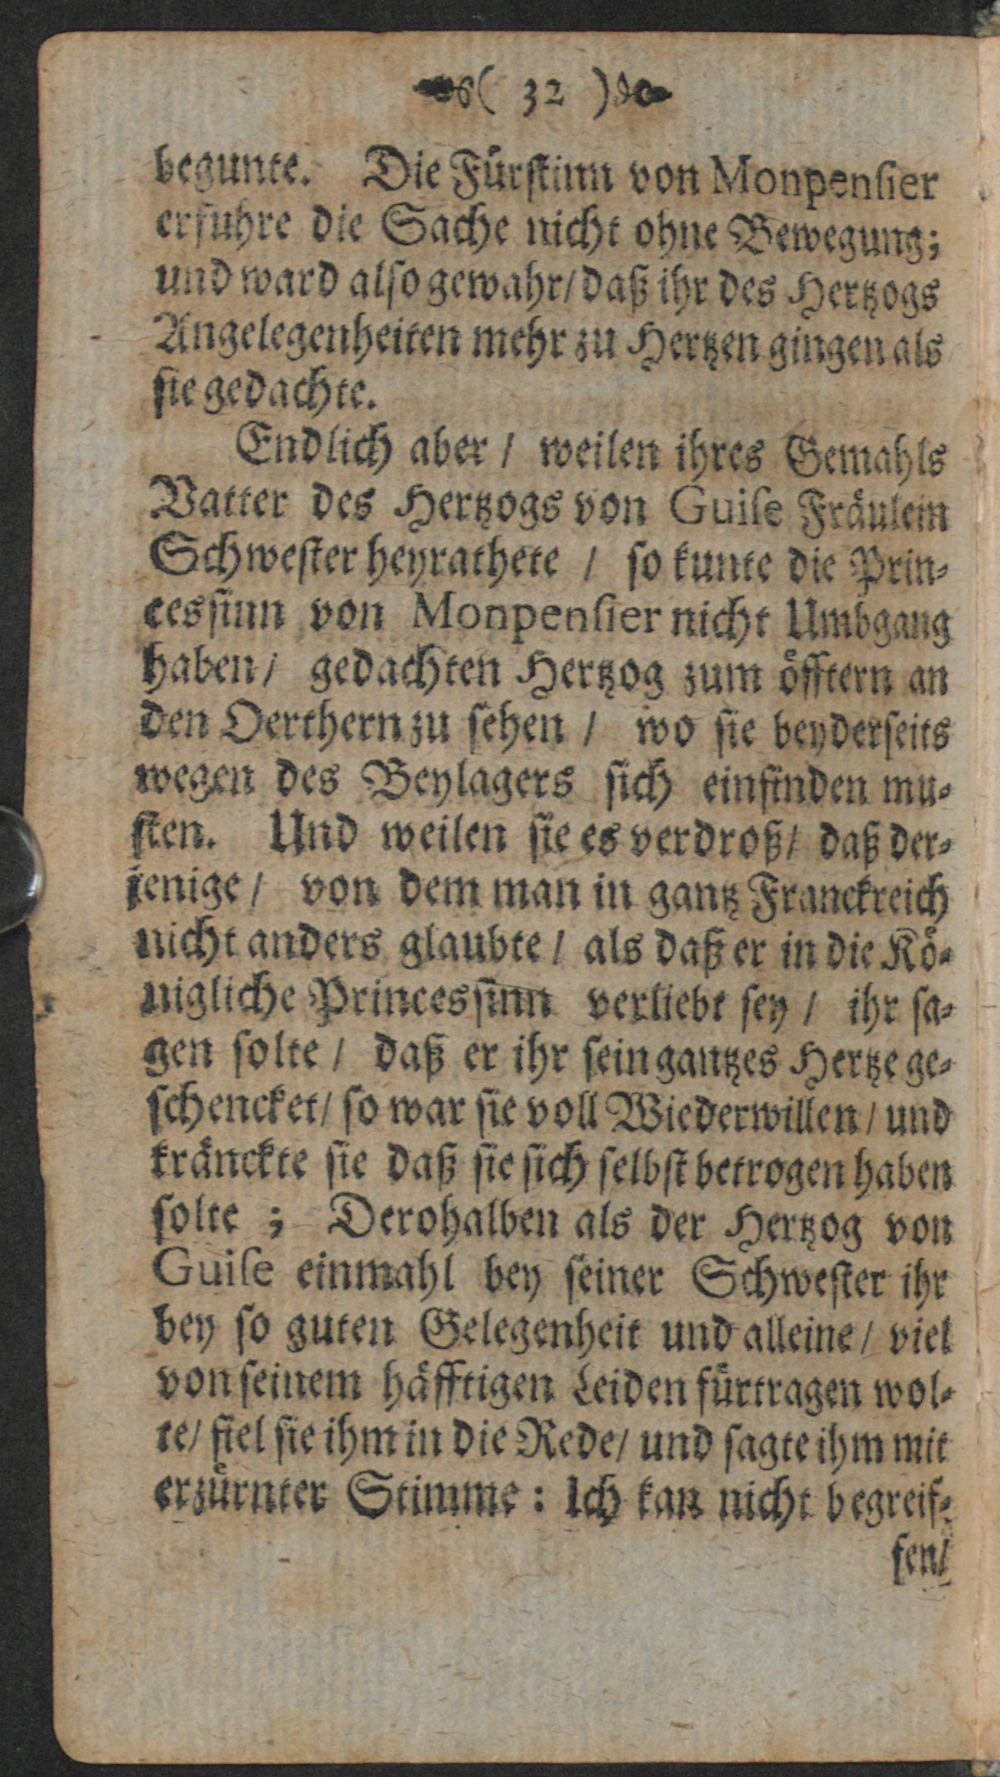 ( 32 )
begunte. Die Fürstinn von Monpensier
erfuhre die Sache nicht ohne Bewegung;
und ward also gewahr/ daß ihr des Hertzogs
Angelegenheiten mehr zu Hertzen gingen als
sie gedachte.
Endlich aber / weilen ihres Gemahls
Vatter des Hertzogs von Guise Fräulein
Schwester heyrathete / so kunte die Prin-
cessinn von Monpensier nicht Umbgang
haben / gedachten Hertzog zum öfftern an
den Oerthern zu sehen / wo sie beyderseits
wegen des Beylagers sich einfinden mu-
sten. Und weilen sie es verdroß/ daß der-
jenige / von dem man in gantz Franckreich
nicht anders glaubte / als daß er in die Kö-
nigliche Princessinn verliebt sey / ihr sa-
gen solte / daß er ihr sein gantzes Hertze ge-
schencket/ so war sie voll Wiederwillen / und
kränckte sie daß sie sich selbst betrogen haben
solte ; Derohalben als der Hertzog von
Guise einmahl bey seiner Schwester ihr
bey so guten Gelegenheit und alleine / viel
von seinem häfftigen Leiden fürtragen wol-
te/ fiel sie ihm in die Rede/ und sagte ihm mit
erzürnter Stimme : Ich kan nicht begreif-
fen/